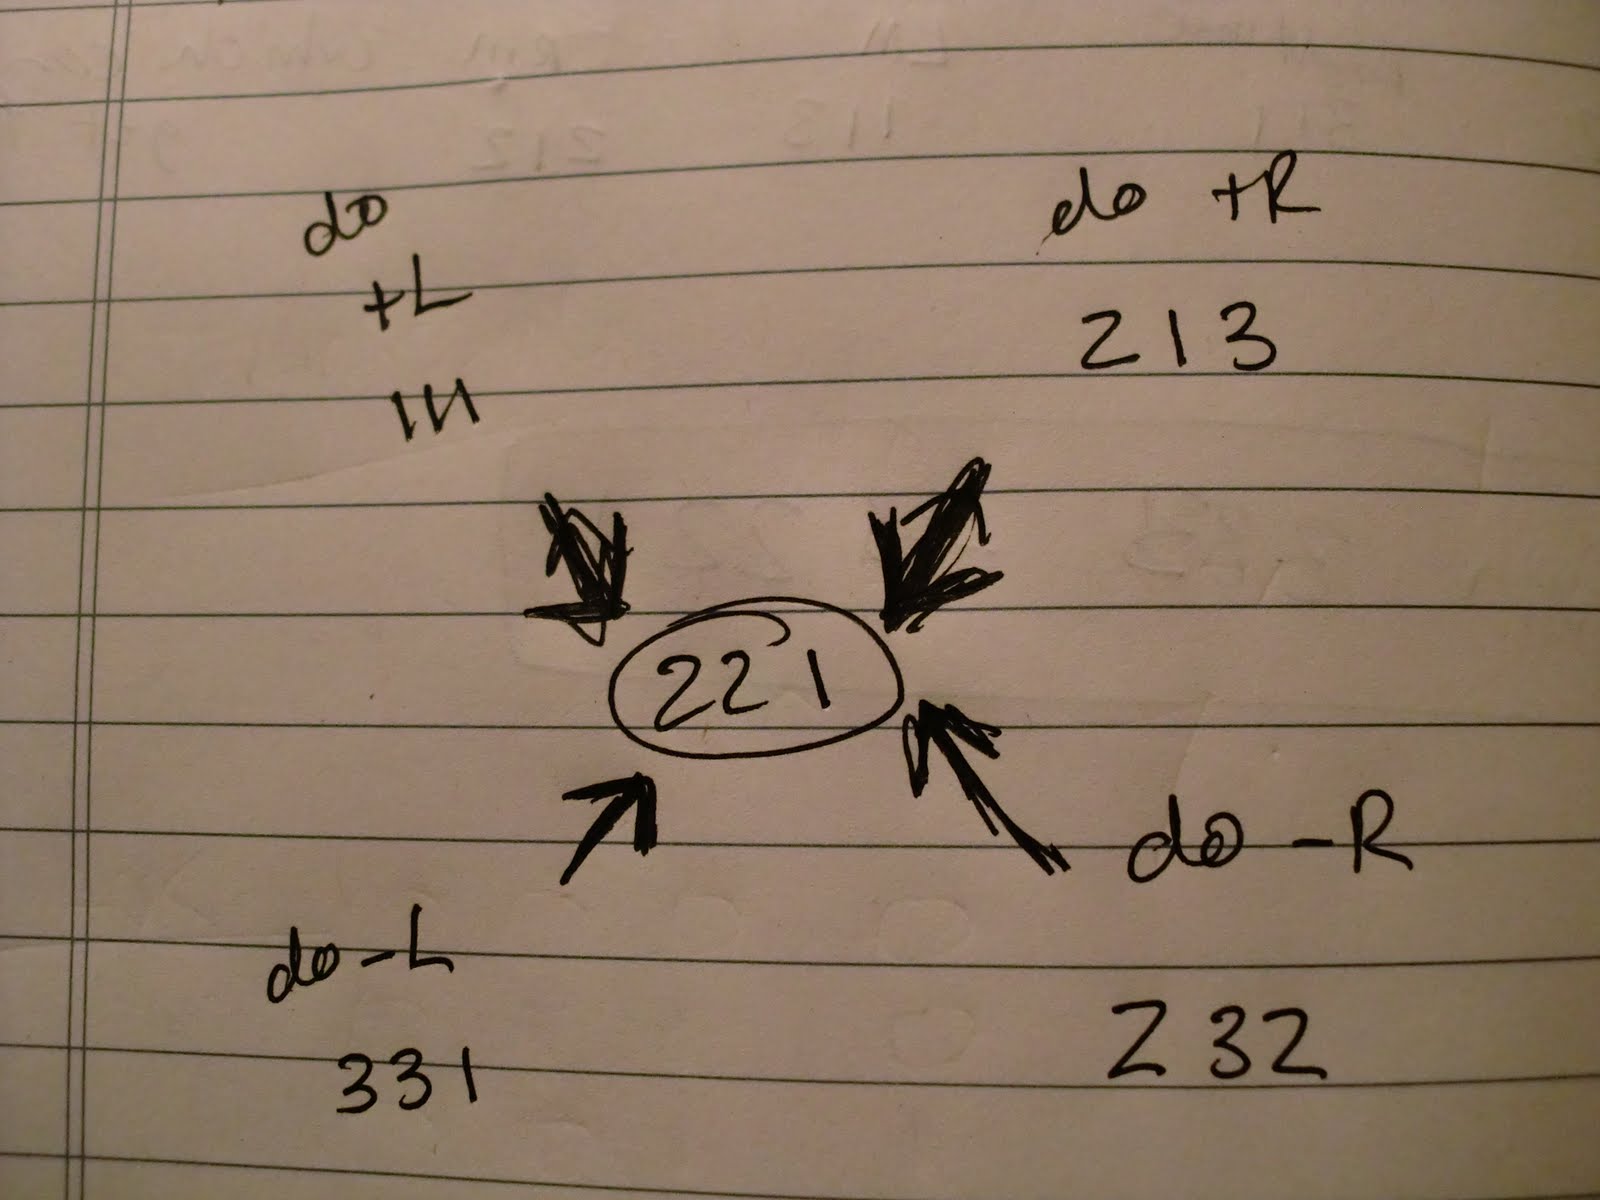 do
+L
111
do +R
213
221
do -L
331
do -R
232